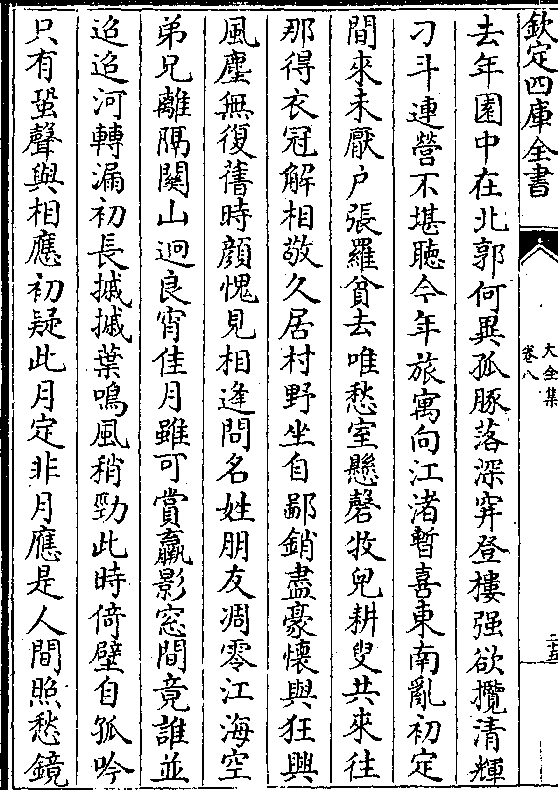 欽定四庫全書
大全集
卷八
去年園中在北郭何異孤豚落深穽登樓强欲攬清輝
刁斗連營不堪聽今年旅寓向江渚暫喜東南亂初定
間來未厭户張羅貧去唯愁室懸磬牧兒耕叟共來往
那得衣冠解相敬久居村野坐自鄙銷盡豪懷與狂興
風塵無復舊時顔愧見相逢問名姓朋友凋零江海空
弟兄離隔關山迥良宵佳月雖可賞羸影窓間竟誰並
迢迢河轉漏初長摵摵葉鳴風稍勁此時倚壁自孤吟
只有蛩聲與相應初疑此月定非月應是人間照愁鏡